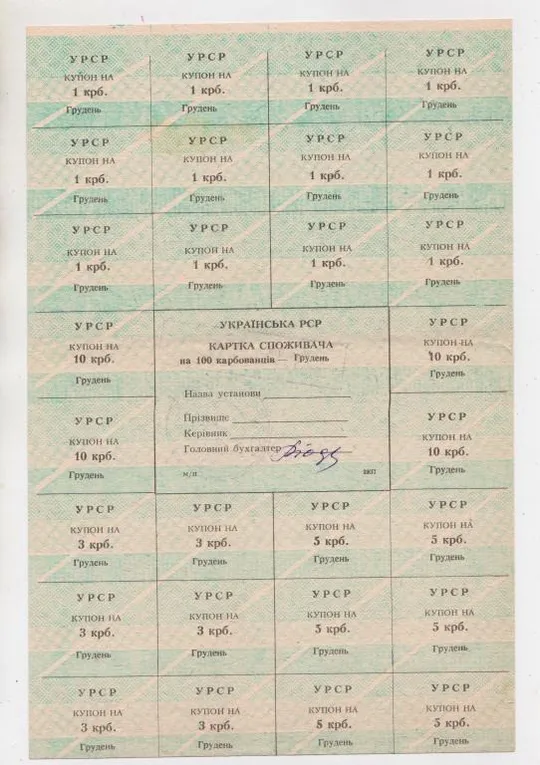 УРСР УРСР УРСР УРСР
КУПОН НА КУПОН НА КУПОН НА КУПОН НА
1 крб. 1 крб. 1 крб. 1 крб.
Грудень Грудень Грудень Грудень
УРСР УРСР УРСР УРСР
КУПОН НА КУПОН НА КУПОН НА КУПОН НА
1 крб. 1 крб. 1 крб. 1 крб.
Грудень Грудень Грудень Грудень
УРСР УРСР УРСР УРСР
КУПОН НА КУПОН НА КУПОН НА КУПОН НА
1 крб. 1 крб. 1 крб. 1 крб.
Грудень Грудень Грудень Грудень
УРСР
КУПОН НА
10 крб.
Грудень
УРСР
КУПОН НА
10 крб.
Грудень
УКРАЇНСЬКА РСР
КАРТКА СПОЖИВАЧА
на 100 карбованців — Грудень
Назва установи
Прізвище
Керівник
Головний бухгалтер
м/п
УРСР
КУПОН НА
10 крб.
Грудень
УРСР
КУПОН НА
10 крб.
Грудень
УРСР УРСР УРСР УРСР
КУПОН НА КУПОН НА КУПОН НА КУПОН НА
3 крб. 3 крб. 5 крб. 5 крб.
Грудень Грудень Грудень Грудень
УРСР УРСР УРСР УРСР
КУПОН НА КУПОН НА КУПОН НА КУПОН НА
3 крб. 3 крб. 5 крб. 5 крб.
Грудень Грудень Грудень Грудень
УРСР УРСР УРСР УРСР
КУПОН НА КУПОН НА КУПОН НА КУПОН НА
3 крб. 3 крб. 5 крб. 5 крб.
Грудень Грудень Грудень Грудень